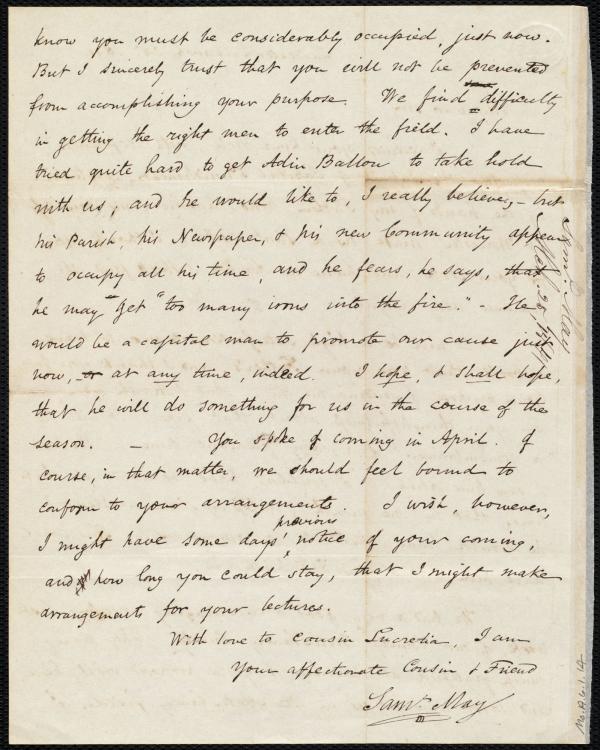 know you must be considerably occupied, just now.
But I sincerely trust that you will not be prevented
from accomplishing your purpose. We find difficulty
in getting the right men to enter the field. I have
tried quite hard to get Adin Ballou to take hold
with us; and he would like to, I really believe, - but
his Parish, his Newspaper, & his new Community appear
to occupy all his time, and he fears, he says, that
he may "get "too many irons into the fire." - He
would be a capital man to promote our cause just
now, - or at any time, indeed. I hope, & shall hope,
that he will do something for us in the course of the
season. - You spoke of coming in April. Of
course, in that matter, we should feel bound to
conform to your arrangements. I wish, however,
previous
I might have some days' notice of your coming,
and how long you could stay, that I might make
arrangements for your lectures.
With love to cousin Lucretia, I am
Your affectionate Cousin & Friend
Saml. May
Saml. May
Ms.A.6.1.14